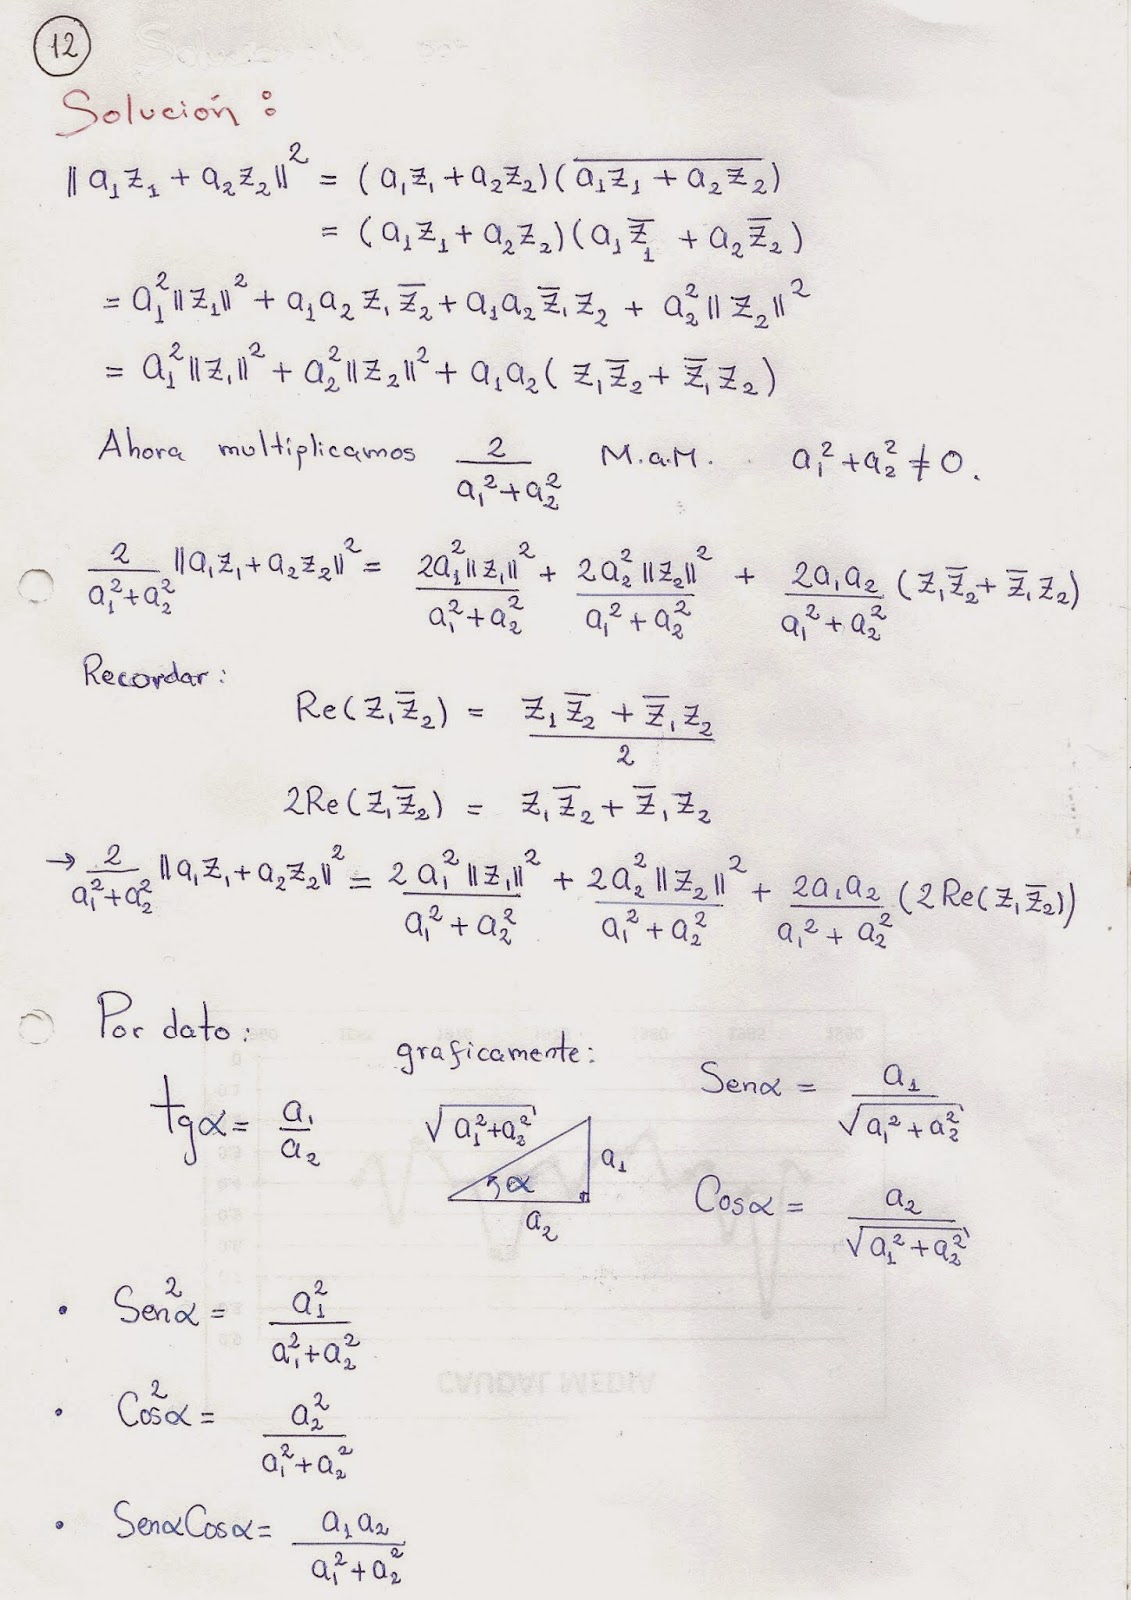 12
Solución:
||a₁z₁ + a₂z₂||² = (a₁z₁ + a₂z₂)(\overline{a₁z₁ + a₂z₂})
= (a₁z₁ + a₂z₂)(a₁z̅₁ + a₂z̅₂)
= a₁²||z₁||² + a₁a₂z₁z̅₂ + a₁a₂z̅₁z₂ + a₂²||z₂||²
= a₁²||z₁||² + a₂²||z₂||² + a₁a₂(z₁z̅₂ + z̅₁z₂)
Ahora multiplicamos 2/(a₁²+a₂²) M.a.M. a₁²+a₂² ≠ 0.
2/(a₁²+a₂²) ||a₁z₁+a₂z₂||² = 2a₁²||z₁||²/(a₁²+a₂²) + 2a₂²||z₂||²/(a₁²+a₂²) + 2a₁a₂/(a₁²+a₂²) (z₁z̅₂ + z̅₁z₂)
Recordar:
Re(z₁z̅₂) = (z₁z̅₂ + z̅₁z₂)/2
2Re(z₁z̅₂) = z₁z̅₂ + z̅₁z₂
→ 2/(a₁²+a₂²) ||a₁z₁+a₂z₂||² = 2a₁²||z₁||²/(a₁²+a₂²) + 2a₂²||z₂||²/(a₁²+a₂²) + 2a₁a₂/(a₁²+a₂²) (2Re(z₁z̅₂))
Por dato:
graficamente:
tgα = a₁/a₂
√(a₁²+a₂²)
α
a₁
a₂
Senα = a₁/√(a₁²+a₂²)
Cosα = a₂/√(a₁²+a₂²)
• Sen²α = a₁²/(a₁²+a₂²)
• Cos²α = a₂²/(a₁²+a₂²)
• SenαCosα = a₁a₂/(a₁²+a₂²)
CAUDAL MEDIA